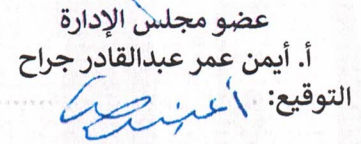 عضو مجلس الإدارة
أ. أيمن عمر عبدالقادر جراح
التوقيع: